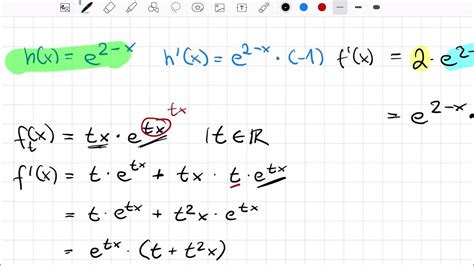 h(x) = e^{2-x}   h'(x) = e^{2-x} · (-1)   f'(x) = 2 · e^{2-
= e^{2-x} ·
tx
f_t(x) = tx · e^{tx}   | t ∈ ℝ
f'(x) = t · e^{tx} + tx · t · e^{tx}
= t · e^{tx} + t²x · e^{tx}
= e^{tx} · (t + t²x)